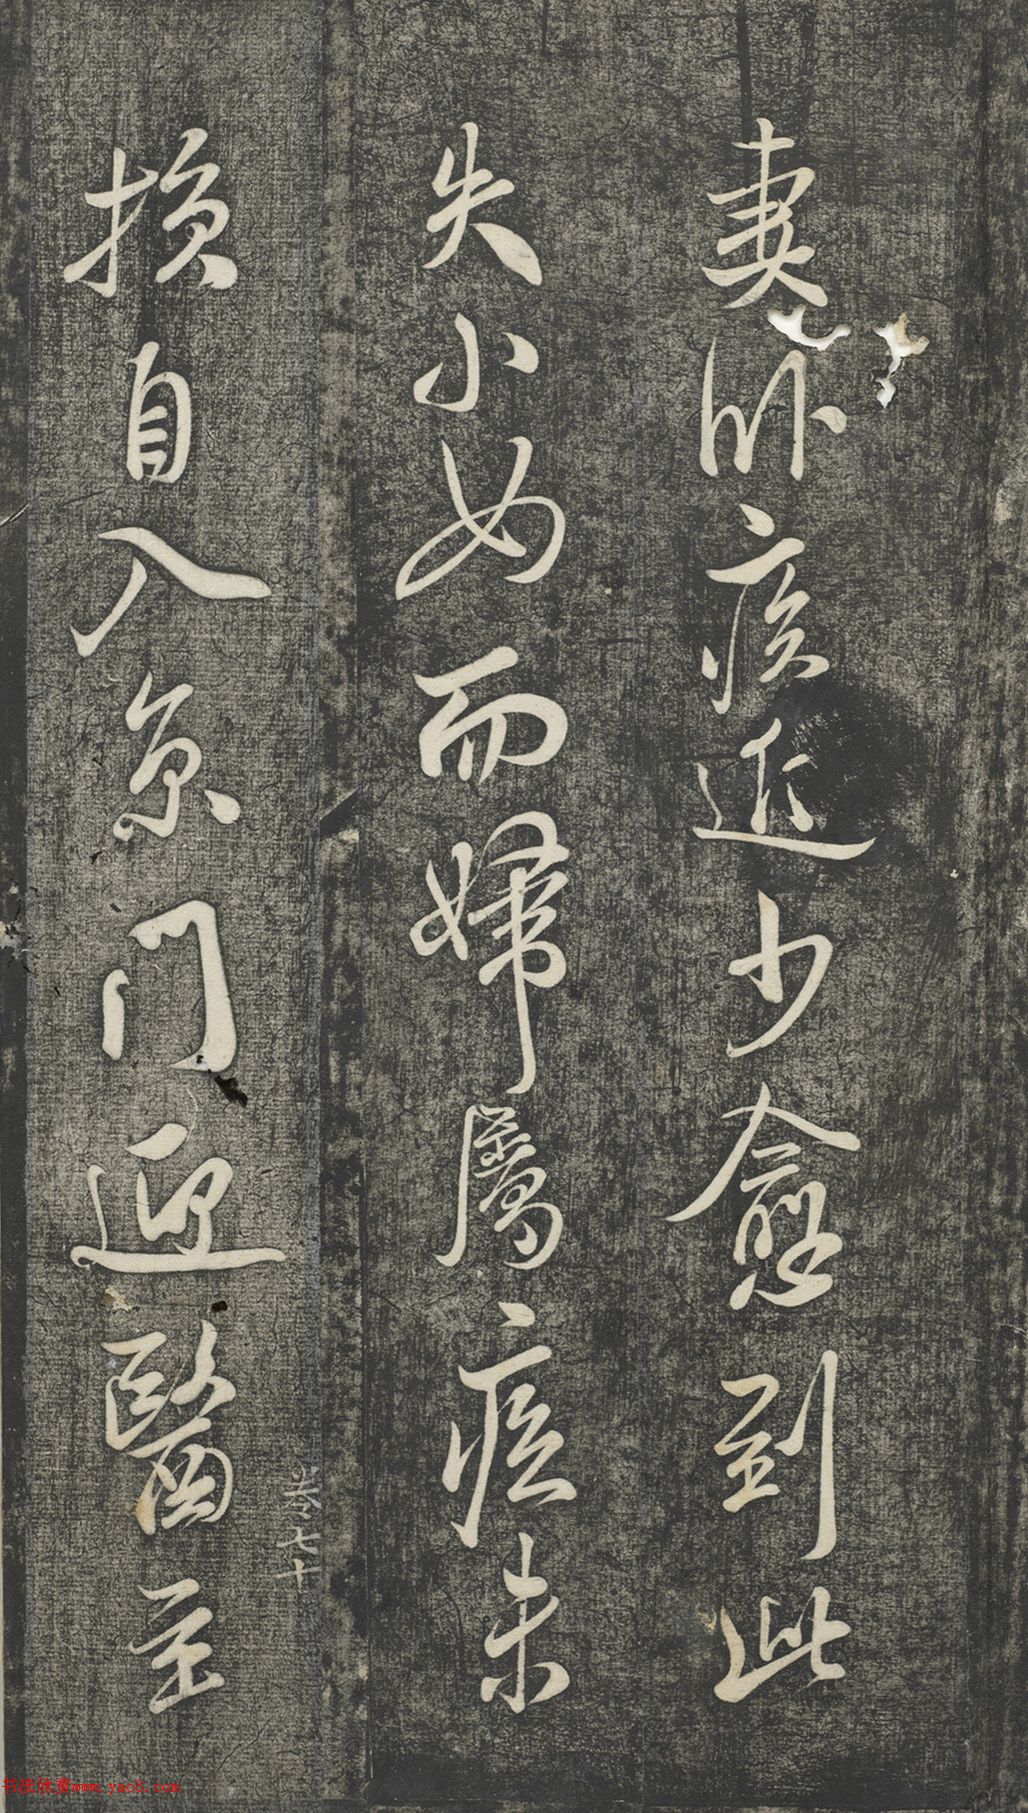 妻卧疾近少愈到此
失小女而婦屬疾未
損自入京門迎醫至
米七十
书法欣赏www.yac8.com